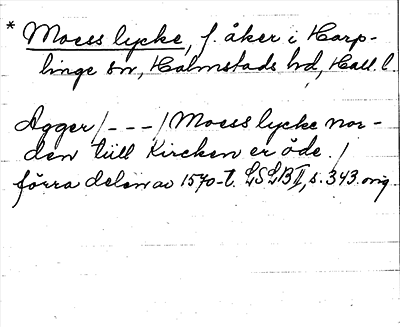 * Moess lycke, f. åker i Harp-
linge sn, Halmstads hd, Hall. l.
Agger /---/ Moess lycke nor-
den tiill Kircken er öde. /
förra delen av 1570-t. LSLB II, s. 343. orig.